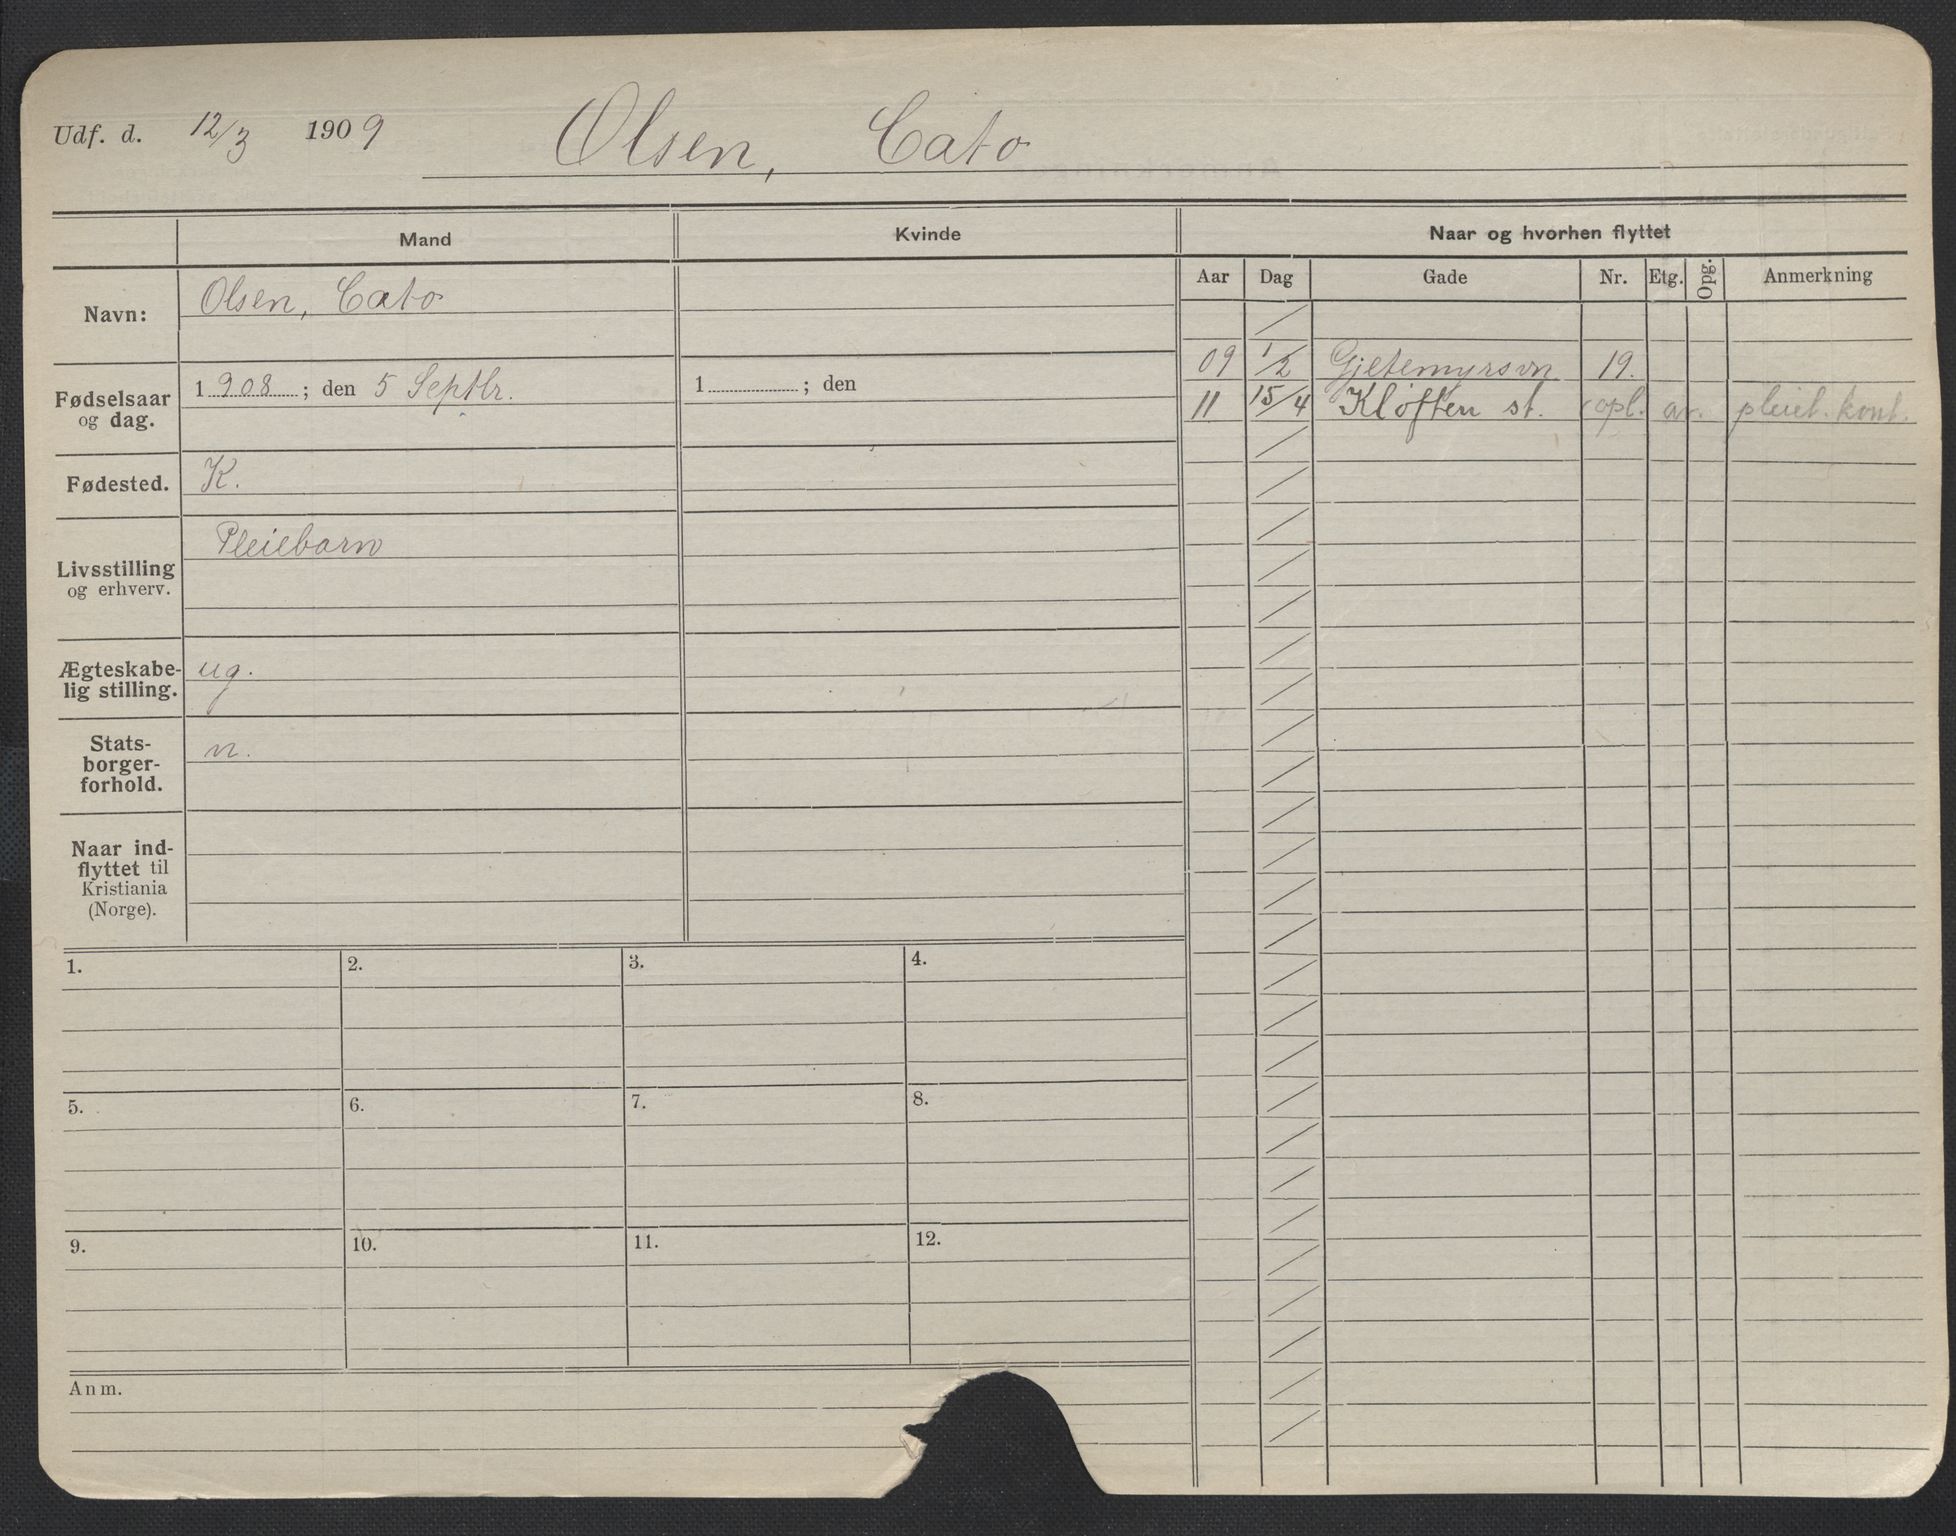 Udf. d. 12/3 1909 Olsen, Cato
Mand Kvinde Naar og hvorhen flyttet
Aar Dag Gade Nr. Etg. Opg. Anmerkning
Navn: Olsen, Cato
09 1/2 Gjetemyrsvn 19.
11 15/4 Kløften st. (opl. av. pleiet. kont.
Fødselsaar og dag. 1908; den 5 Septbr. 1 ; den
Fødested. K.
Livsstilling og erhverv. Pleiebarn
Ægteskabe-
lig stilling. ug.
Stats-
borger-
forhold. n.
Naar ind-
flyttet til
Kristiania
(Norge).
1. 2. 3. 4.
5. 6. 7. 8.
9. 10. 11. 12.
Anm.